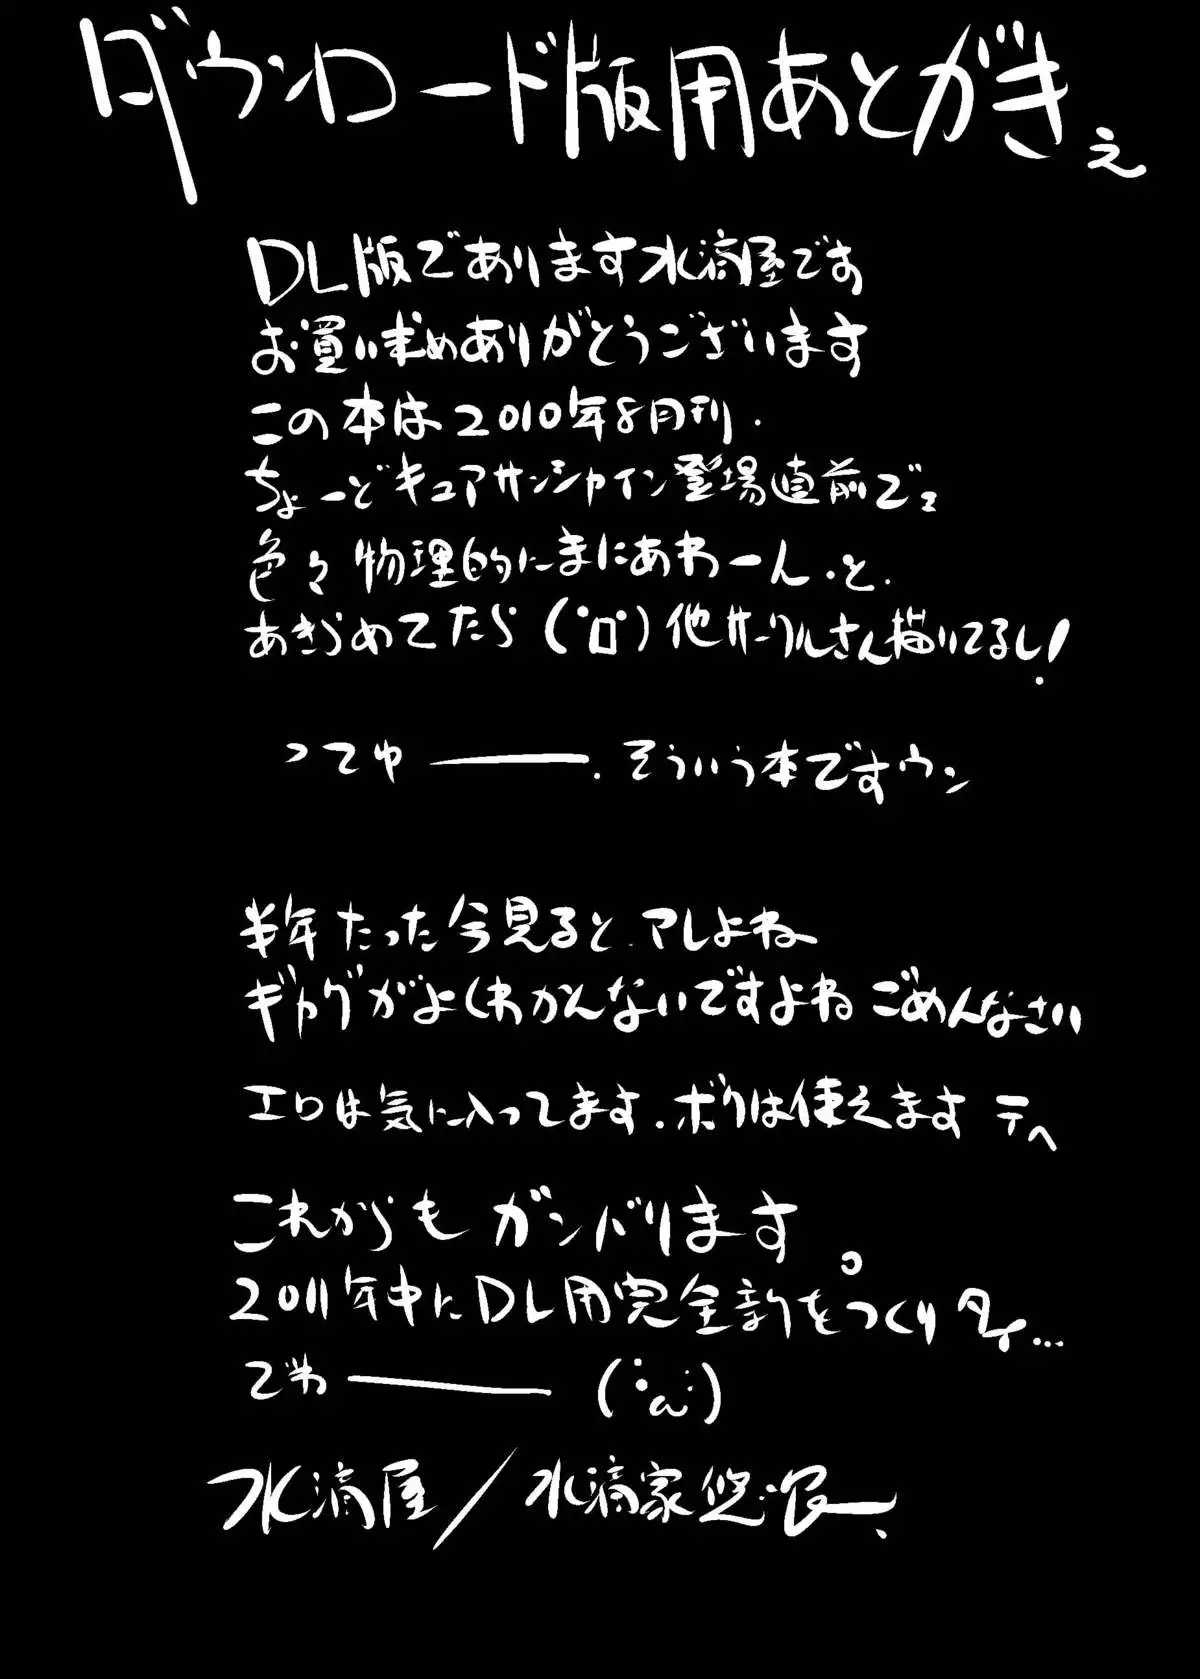 ダウンロード版用あとがきぇ
DL版であります水滴屋です
お買い求めありがとうございます
この本は2010年8月刊.
ちょーどキュアサンシャイン登場直前で、
色々物理的にまにあわーん.と.
あきらめてたら(゚ロ゚)他サークルさん描いてるし!
ってゆ――.そういう本ですウン
半年たった今見ると、アレよね
ギャグがよくわかんないですよねごめんなさい
エロは気に入ってます.ボクは使えますテヘ
これからもガンバります。
2011年中にDL用完全新をつくりタイ...
でわ――
水滴屋/水滴家悠浪